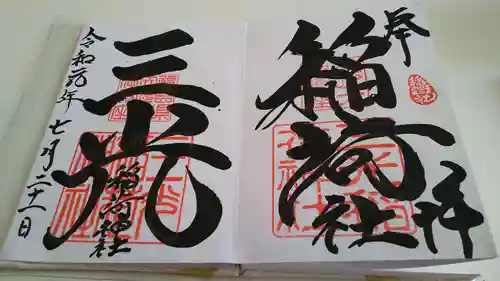 奉拝
稲荷社
三光
稲荷神社
令和元年七月二十一日